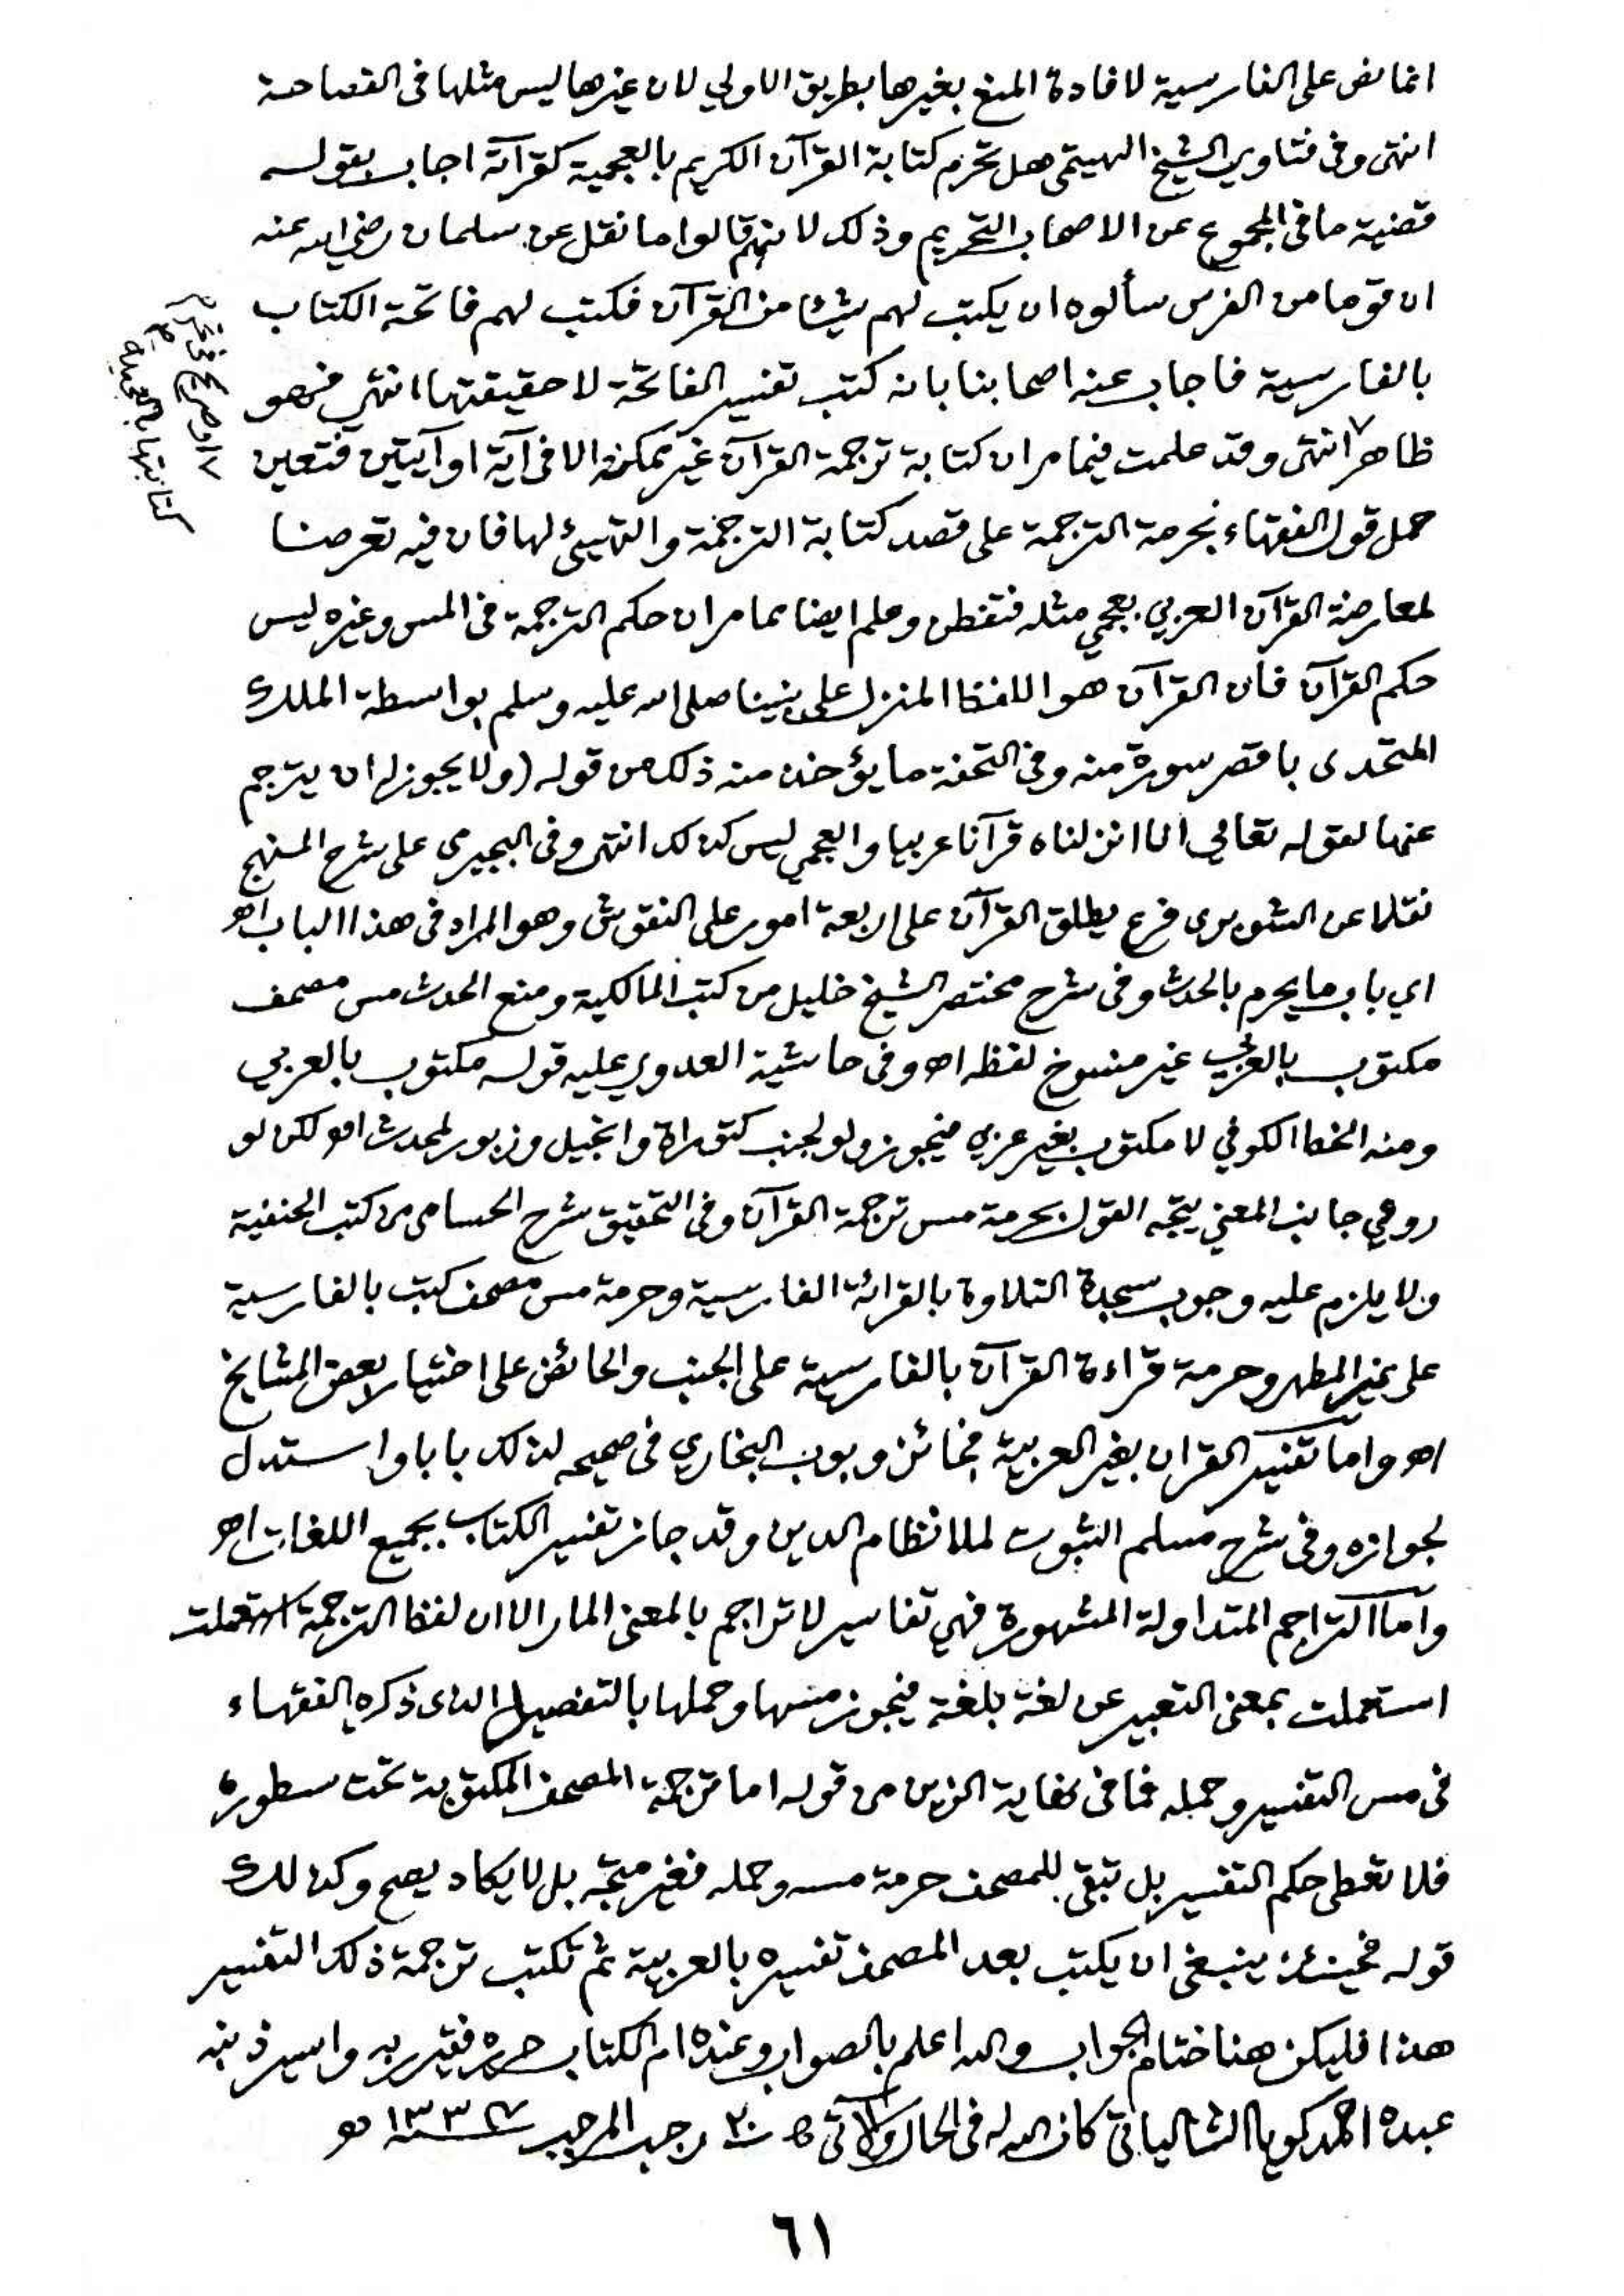 انما نص على الفارسية لافادة المنع بغيرها بطريق الاولي لان غيرها ليس مثلها في الفصاحة
انتهى وفي فتاوي الشيخ الهيتمي هل تحرم كتابة القرآن الكريم بالعجمية كقرآته اجاب بقوله
قضية ما في المجموع عن الاصحاب التحريم وذلك لانهم قالوا ما نقل عن سلمان رضي الله عنه
ان قوما من الفرس سألوه ان يكتب لهم شيئا من القرآن فكتب لهم فاتحة الكتاب
بالفارسية فاجاب عنه اصحابنا بانه كتب تفسير الفاتحة لا حقيقتها انتهى فهو
ظاهر انتهى وقد علمت فيما مر ان كتابة ترجمة القرآن غير ممكن الا في آية او آيتين فتعين
حمل قول الفقهاء بحرمة الترجمة على قصد كتابة الترجمة والتهيئ لها فان فيه تعرضا
لمعارضة القرآن العربي بعجمي مثله فتفطن وعلم ايضا مما مر ان حكم الترجمة في المس وغيره ليس
حكم القرآن فان القرآن هو اللفظ المنزل على نبينا صلى الله عليه وسلم بواسطة الملك
المتحدى باقصر سورة منه وفي التحفة ما يؤخذ منه ذلك من قوله (ولا يجوز له ان يترجم
عنها لقوله تعالي انا انزلناه قرآنا عربيا والعجمي ليس كذلك انتهى وفي البجيرمى على شرح المنهج
نقلا عن الشوبرى فرع يطلق القرآن على اربعة امور على النقوش وهو المراد في هذا الباب اهـ
اي باب ما يحرم بالحدث وفي شرح مختصر الشيخ خليل من كتب المالكية ومنع الحدث مس مصحف
مكتوب بالعربي غير منسوخ لفظه اهـ وفي حاشية العدوي عليه قوله مكتوب بالعربي
ومنه الخط الكوفي لا مكتوب بغير عربي فيجوز ولو لجنب كتوراة وانجيل وزبور لمحدث اهـ لكن لو
روعي جانب المعني يتجه القول بحرمة مس ترجمة القرآن وفي التحقيق شرح الحسامى من كتب الحنفية
ولا يلزم عليه وجوب سجدة التلاوة بالقرائة الفارسية وحرمة مس مصحف كتب بالفارسية
على غير المطهر وحرمة قراءة القرآن بالفارسية على الجنب والحائض على اختيار بعض المشايخ
اهـ واما تفسير القران بغير العربية فجائز وبوب البخاري في صحيحه لذلك بابا واستدل
لجوازه وفي شرح مسلم الثبوت لملا نظام الدين وقد جاز تفسير الكتاب بجميع اللغات اهـ
واما التراجم المتداولة المشهورة فهي تفاسير لا تراجم بالمعنى المار الا ان لفظ الترجمة
استعملت بمعنى التعبير عن لغة بلغة فيجوز مسها وحملها بالتفصيل الذى ذكره الفقهاء
في مس التفسير وحمله فما في نهاية الزين من قوله اما ترجمة المصحف المكتوبة تحت سطوره
فلا تعطى حكم التفسير بل تبقى للمصحف حرمة مسه وحمله فغير متجه بل لا يكاد يصح وكذلك
قوله فحينئذ ينبغي ان يكتب بعد المصحف تفسيره بالعربية ثم تكتب ترجمة ذلك التفسير
هذا فليكن هنا ختام الجواب والله اعلم بالصواب وعنده ام الكتاب حرره فقير ربه واسير ذنبه
عبده احمد كويا الشالياتي كان الله له في الحال والآتى ٢٠ رجب المرجب
كتابتها بالعجمية
٦١